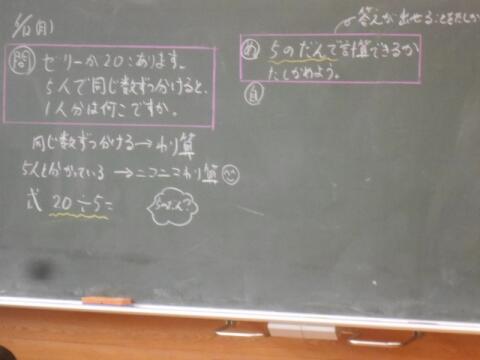 (月)
問
ゼリーが20こあります。
5人で同じ数ずつ分けると、
1人分は何こですか。
同じ数ずつ分ける→わり算
5人と分かっている→ニコニコわり算
式 20÷5=
5のだん?
答えが出せることをたしか
め 5のだんで計算できるか
たしかめよう。
自